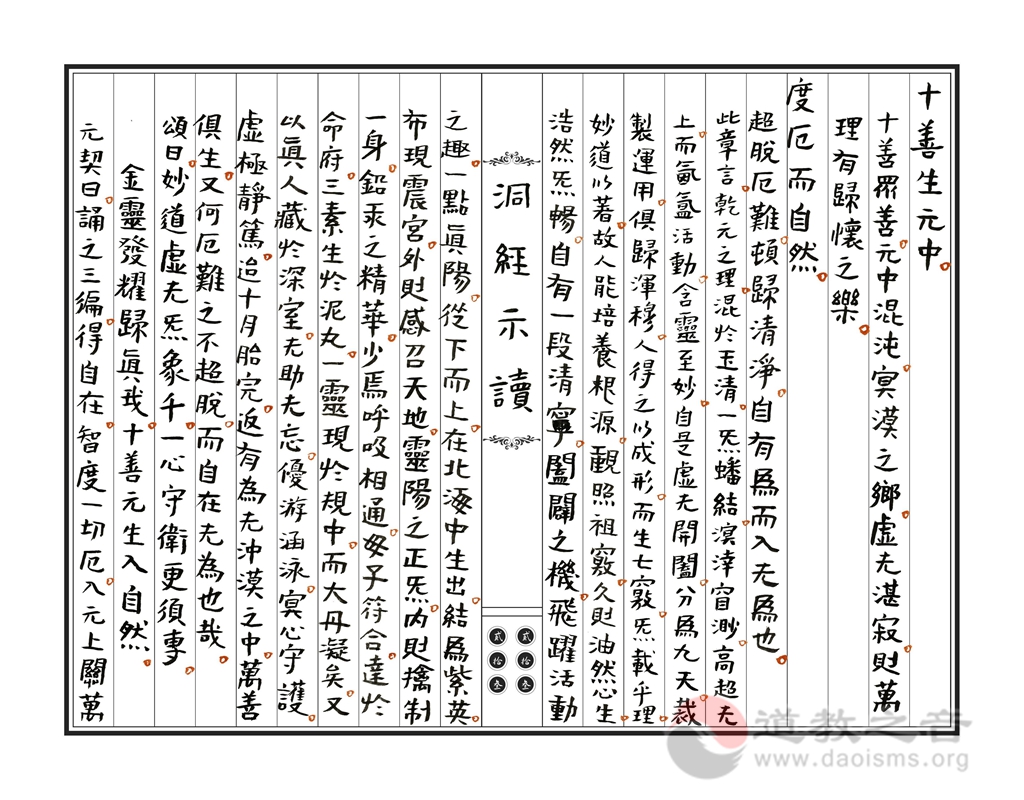 十善生元中
十善眾善元中混沌冥漠之鄉虛无湛寂則萬
理有歸懷之樂
度厄而自然
超脫厄難頓歸清淨自有為而入无為也
此章言乾元之理混於玉清一炁蟠結溟涬窅渺高超无
上而氤氳活動含靈至妙自是虛无開闔分為九天裁
製運用俱歸渾穆人得之以成形而生七竅炁載乎理
妙道以著故人能培養根源觀照祖竅久則油然心生
浩然炁暢自有一段清寧闔闢之機飛躍活動
洞經示讀
貳拾貳
貳拾叁
之趣一點眞陽從下而上在北海中生出結為紫英
布現震宮外則感召天地靈陽之正炁內則擒制
一身鉛汞之精華少焉呼吸相通母子符合達於
命府三素生於泥丸一靈現於規中而大丹凝矣又
以眞人藏於深室无助无忘優游涵泳冥心守護
虛極靜篤迨十月胎完返有為无沖漠之中萬善
俱生又何厄難之不超脫而自在无為也哉
頌曰妙道虛无炁象千一心守衛更須專
金靈發耀歸眞我十善元生入自然
元契曰誦之三編得自在智度一切厄入元上關萬
道教之音
www.daoisms.org